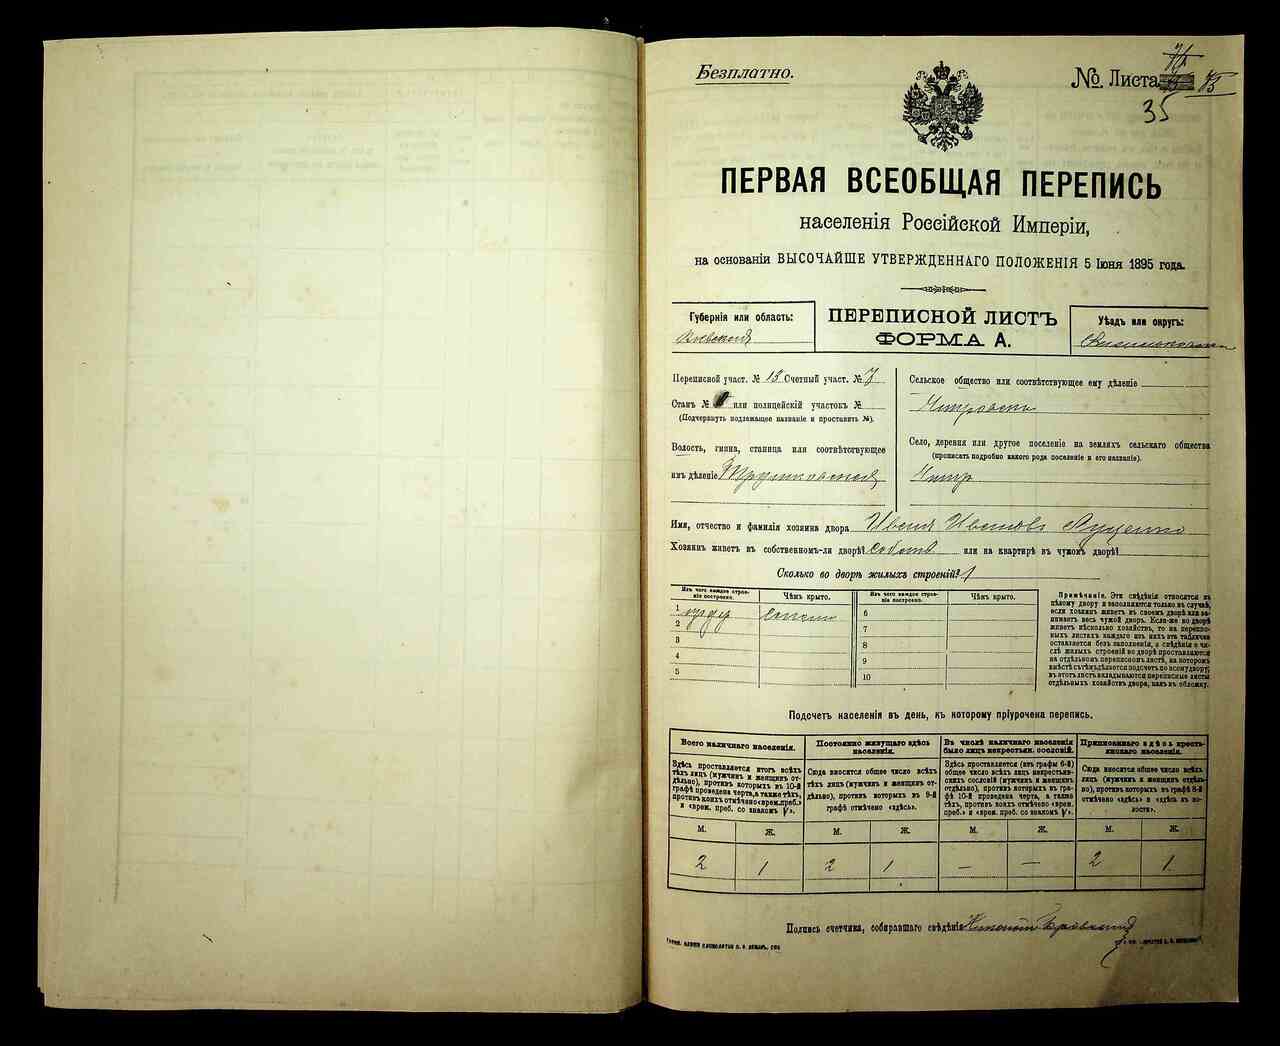 Безплатно.
№ Листа 75
35
ПЕРВАЯ ВСЕОБЩАЯ ПЕРЕПИСЬ
населенія Россійской Имперіи,
на основаніи ВЫСОЧАЙШЕ УТВЕРЖДЕННАГО ПОЛОЖЕНІЯ 5 Іюня 1895 года.
Губернія или область:
Кіевская
ПЕРЕПИСНОЙ ЛИСТЪ
ФОРМА А.
Уѣздъ или округъ:
Переписной участ. № 13 Счетный участ. № 7
Станъ № или полицейскій участокъ №
(Подчеркнуть подлежащее названіе и проставить №).
Волость, гмина, станица или соотвѣтствующее
имъ дѣленіе
Сельское общество или соотвѣтствующее ему дѣленіе
Село, деревня или другое поселеніе на земляхъ сельскаго общества
(прописать подробно какого рода поселеніе и его названіе).
Имя, отчество и фамилія хозяина двора Иванъ Ивановъ Луценко
Хозяинъ живетъ въ собственномъ-ли дворѣ? собств или на квартирѣ въ чужомъ дворѣ?
Сколько во дворѣ жилыхъ строеній? 1
Изъ чего каждое строе-
ніе построено.
Чѣмъ крыто.
Изъ чего каждое строе-
ніе построено.
Чѣмъ крыто.
1
2
3
4
5
6
7
8
9
10
Примѣчаніе. Эти свѣдѣнія относятся къ
цѣлому двору и заполняются только въ случаѣ,
если хозяинъ живетъ въ своемъ дворѣ или за-
нимаетъ весь чужой дворъ. Если-же во дворѣ
живетъ нѣсколько хозяйствъ, то на перепис-
ныхъ листахъ каждаго изъ нихъ эта табличка
оставляется безъ заполненія, а свѣдѣнія о чи-
слѣ жилыхъ строеній во дворѣ проставляются
на отдѣльномъ переписномъ листѣ, на которомъ
вмѣстѣ съ тѣмъ дѣлается подсчетъ по всему двору;
въ этотъ листъ вкладываются переписные листы
отдѣльныхъ хозяйствъ двора, какъ въ обложку.
Подсчетъ населенія въ день, къ которому пріурочена перепись.
Всего наличнаго населенія.
Здѣсь проставляется итогъ всѣхъ
тѣхъ лицъ (мужчинъ и женщинъ от-
дѣльно), противъ которыхъ въ 10-й
графѣ проведена черта, а также тѣхъ,
противъ коихъ отмѣчено «врем. преб.»
и «врем. преб. со знакомъ V».
Постоянно живущаго здѣсь
населенія.
Сюда вносится общее число всѣхъ
тѣхъ лицъ (мужчинъ и женщинъ от-
дѣльно), противъ которыхъ въ 9-й
графѣ отмѣчено «здѣсь».
Въ числѣ наличнаго населенія
было лицъ некрестьян. сословій.
Здѣсь проставляется (въ графы 6-й)
общее число всѣхъ лицъ некрестьян-
скихъ сословій (мужчинъ и женщинъ
отдѣльно), противъ которыхъ въ гра-
фѣ 10-й проведена черта, а также
тѣхъ, противъ коихъ отмѣчено «врем.
преб.» и «врем. преб. со знакомъ V».
Приписаннаго здѣсь кресть-
янскаго населенія.
Сюда вносится общее число всѣхъ
лицъ (мужчинъ и женщинъ отдѣль-
но), противъ которыхъ въ графѣ 8-й
отмѣчено «здѣсь» и «здѣсь въ во-
лости».
М. Ж. М. Ж. М. Ж. М. Ж.
2 1 2 1 — — 2 1
Подпись счетчика, собиравшаго свѣдѣнія